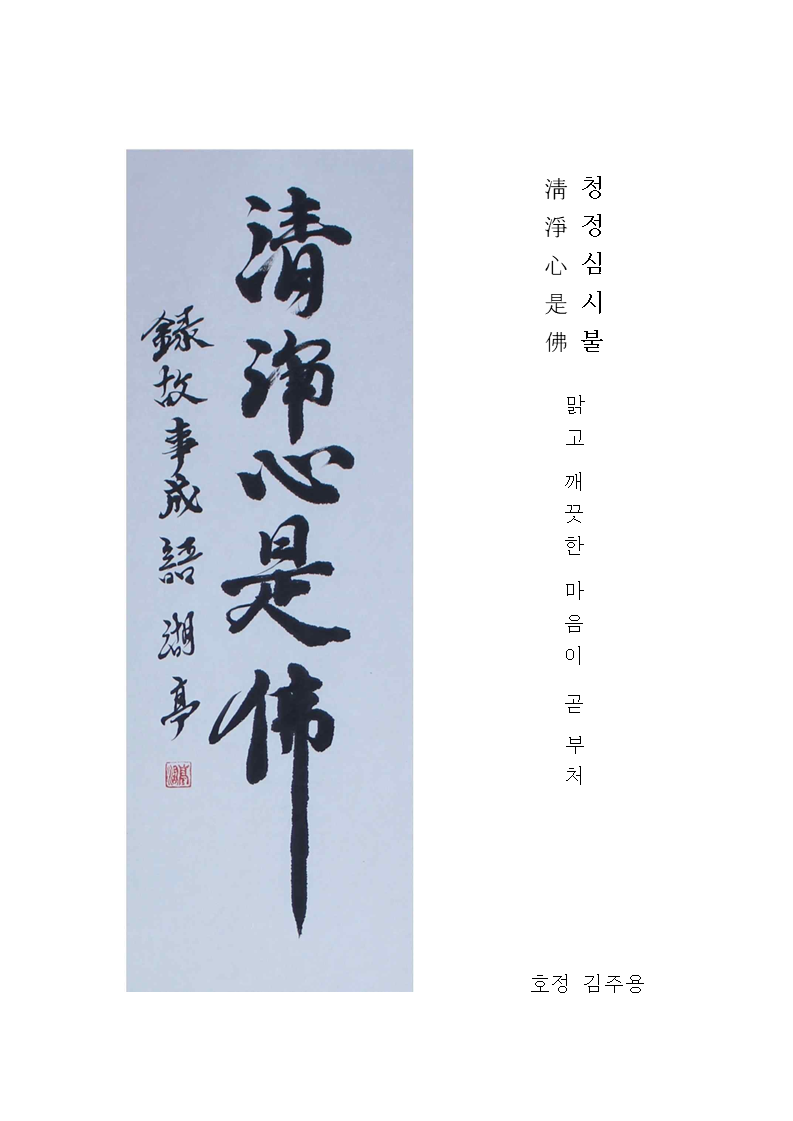 清淨心是佛
錄故事成語 湖亭
淸淨心是佛
청정심시불
맑고 깨끗한 마음이 곧 부처
호정 김주용